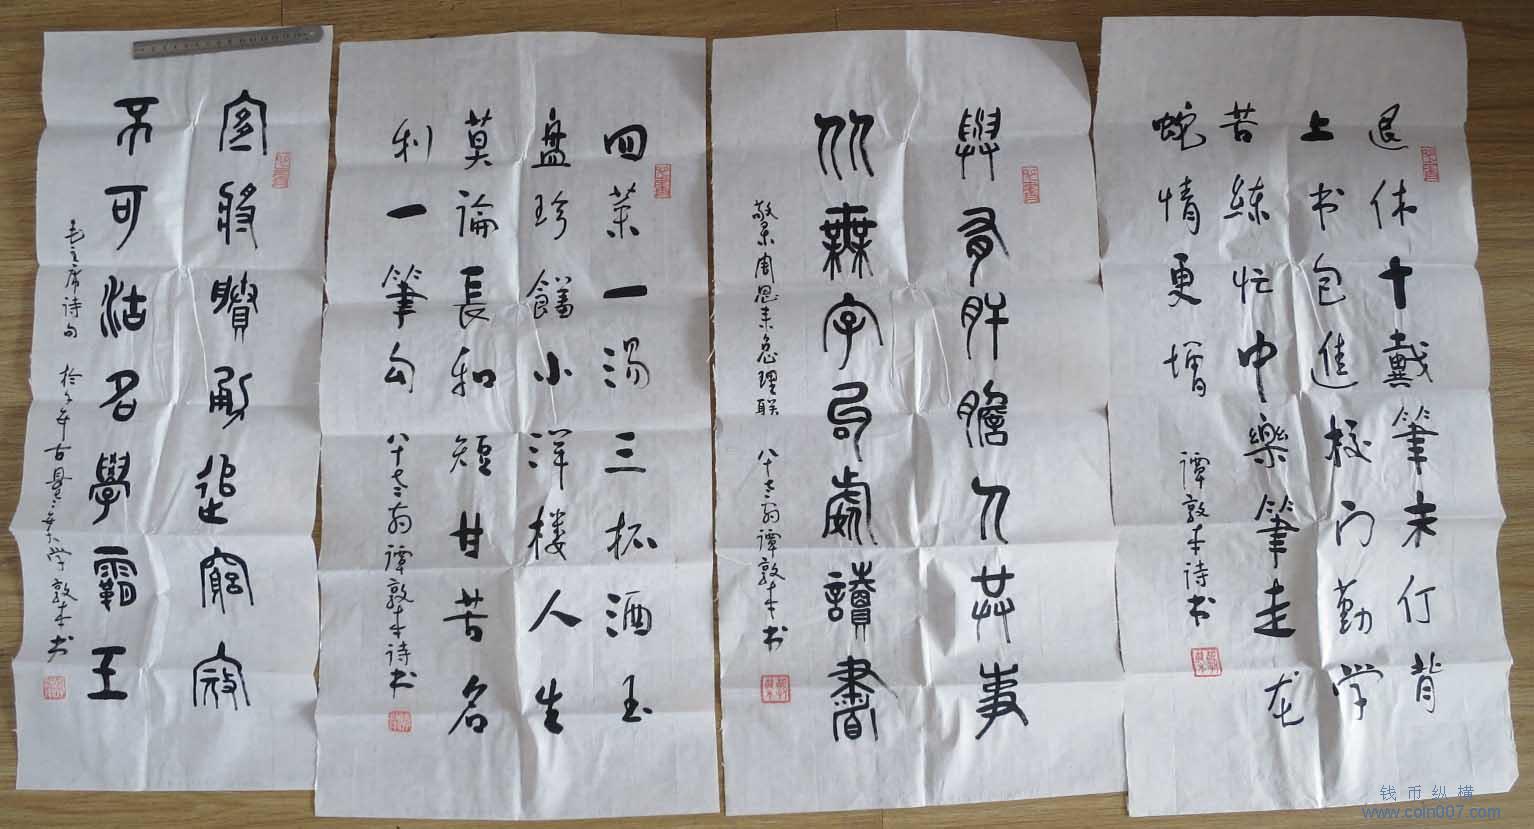 退休十戴筆未仃背
上书包進校门勤学
苦練忙中樂筆走龙
蛇情更增
谭敦本诗书
與有肝膽人共事
从無字句處讀書
敬录周恩来总理联 八十翁谭敦本书
四菜一湯三杯酒玉
盘珍饈小洋楼人生
莫論長和短甘苦名
利一筆勾
八十翁谭敦本诗书
宜將賸勇追窮寇
不可沽名學霸王
毛主席诗句 敦本书
钱币纵横
www.coin007.com